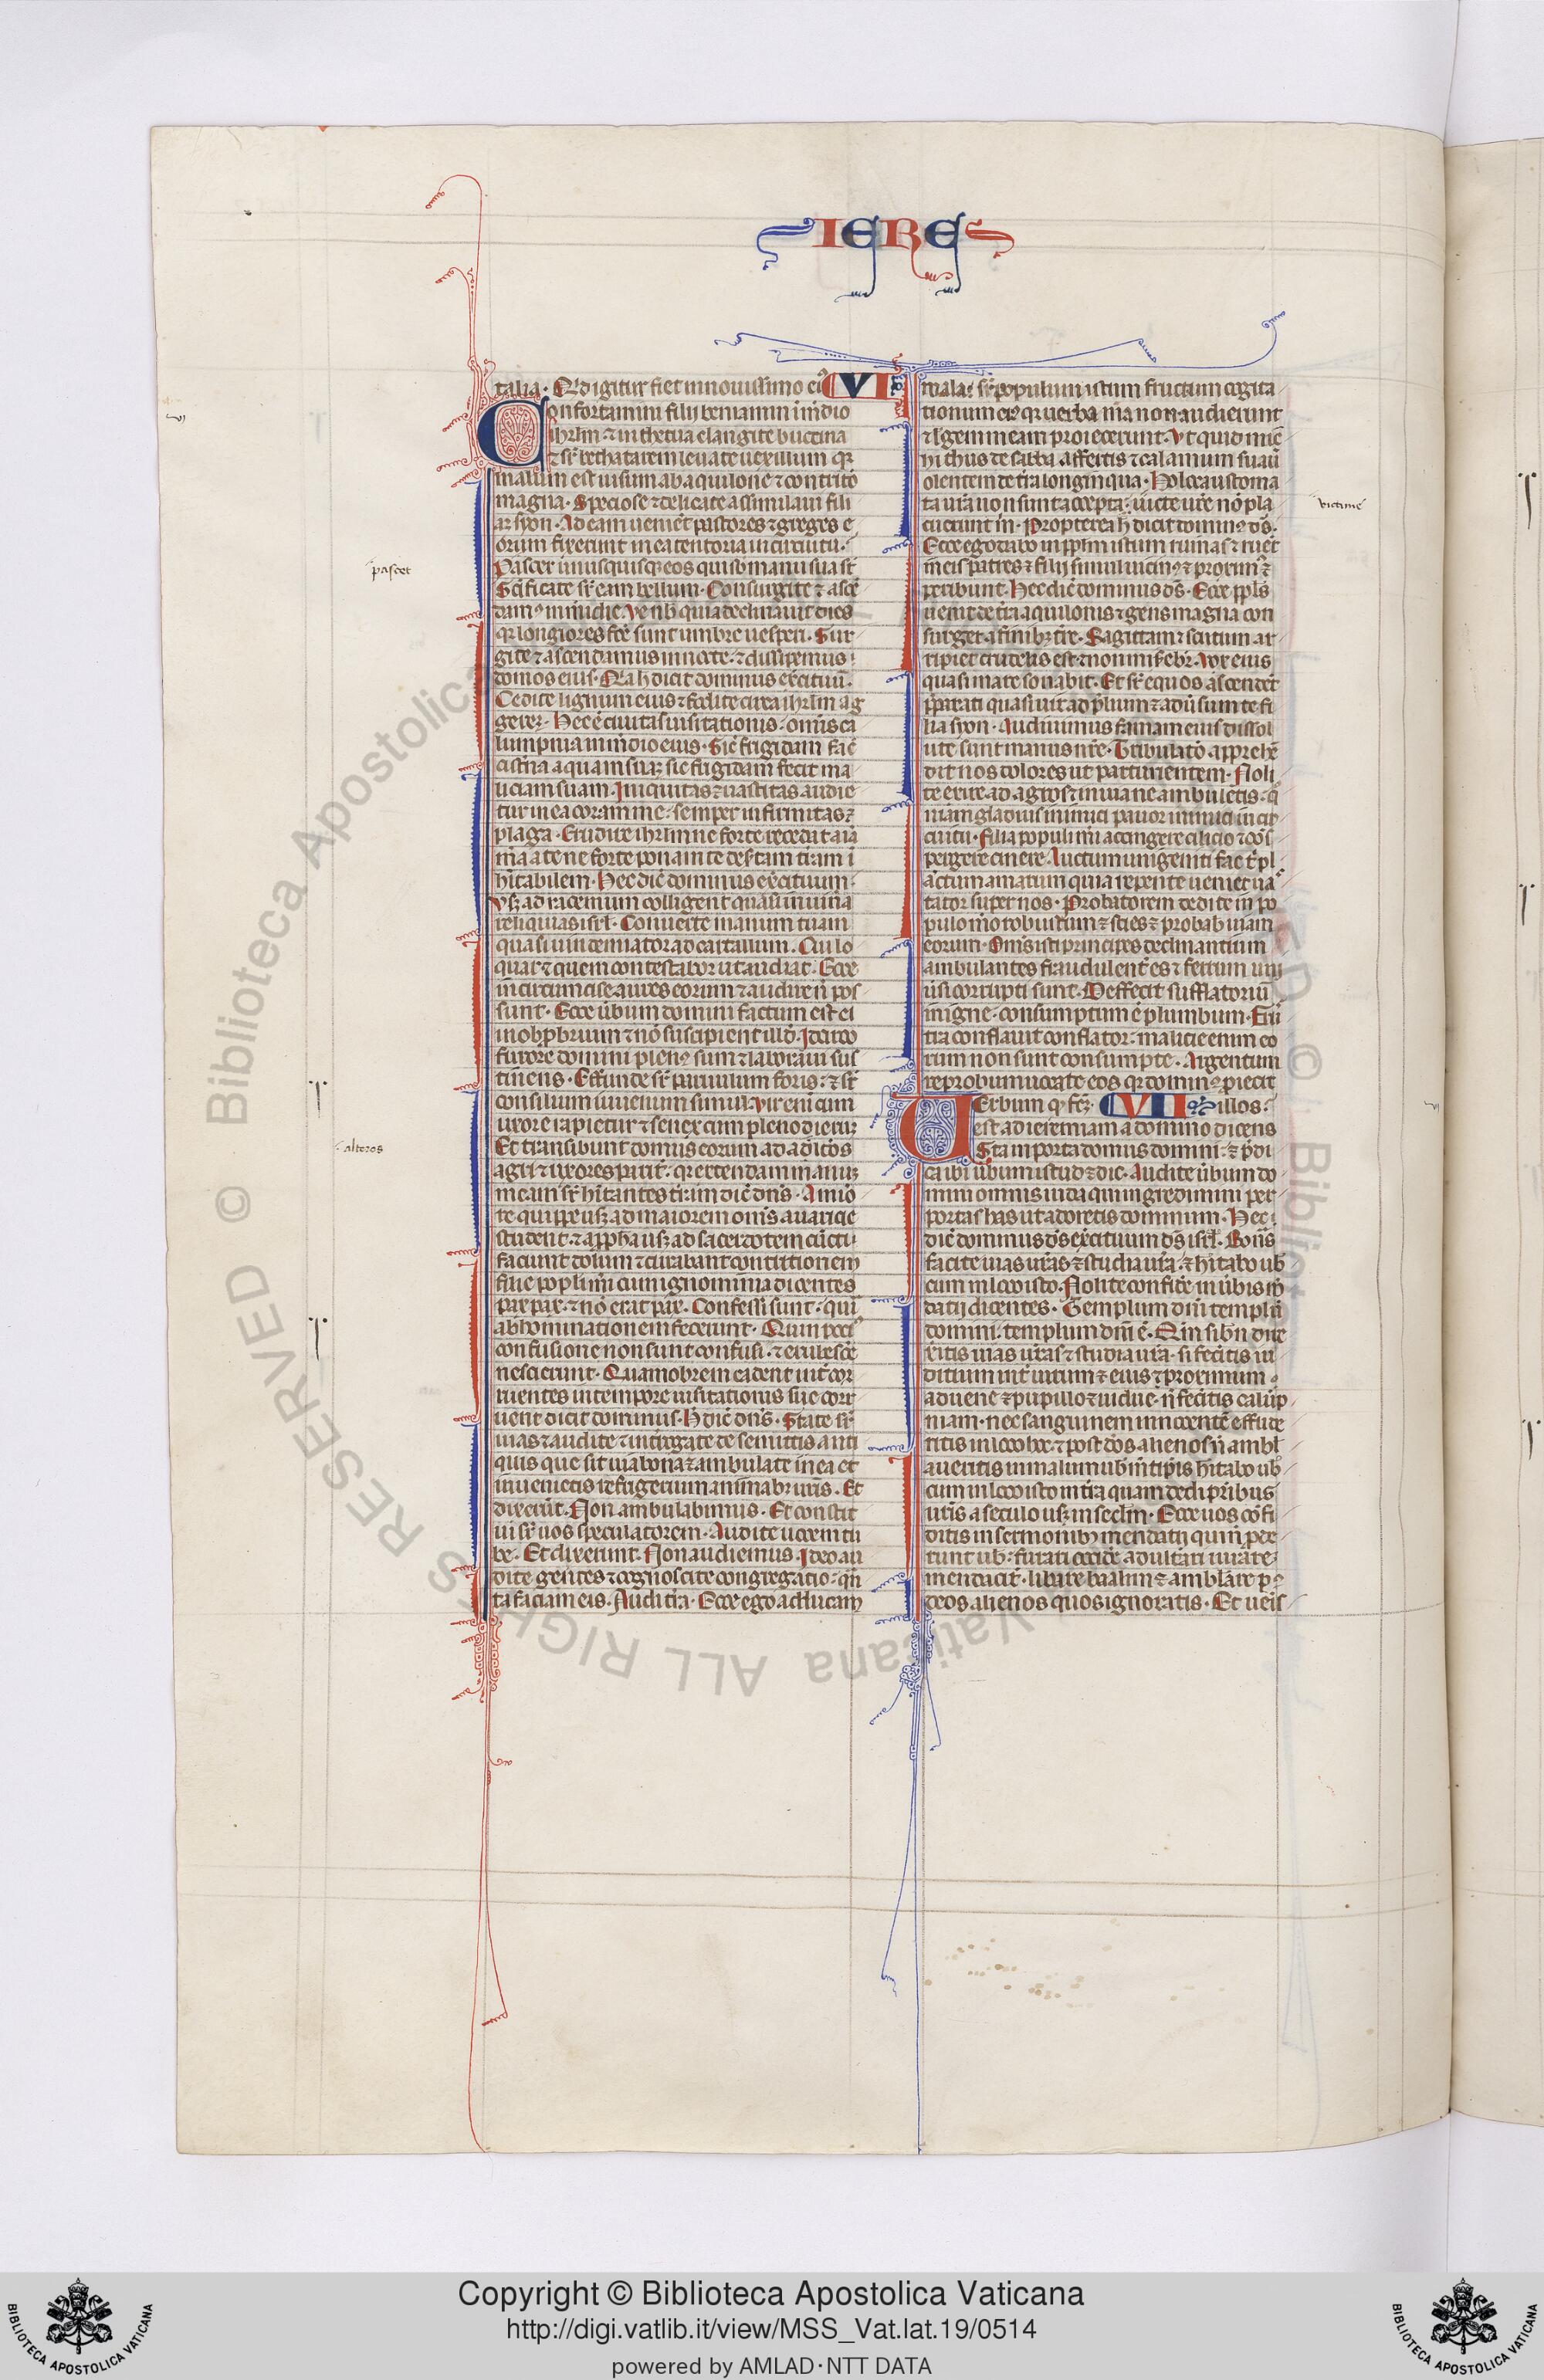 IERE
talia. Qd igitur fiet in nouissimo ei9 VI
Confortamini filij beniamin in mdio
ihrlm ⁊ in thecua clangite buccina
⁊ sr bethacarem leuate uexillum qr
malum est uisum ab aquilone ⁊ contritõ
magna. Speciose ⁊ delicate assimilaui fili
ar syon. Ad eam ueniẽt pastores ⁊ greges e
orum fixerunt in ea tentoria in circuitu.
Pascet unusquisqꝫ eos qui sub manu sua st̃
Scificate sr eam bellum. Consurgite ⁊ ascẽ
dam9 in mĩdie. Ve nb quia declinauit dies
qr longiores fcẽ sunt umbre uesperi. Sur
gite ⁊ ascendamus in nocte. ⁊ dissipemus
domos eius. Qa h dicit dominus exercituũ.
Cedite lignum eius ⁊ fodite circa ihrlm ag
gerem. Hec ẽ ciuitas uisitationis. omis ca
lumpnia in mdio eius. Sic frigidam fac̃
cisterna aquam suaꝫ sic frigidam fecit ma
liciam suam. Iniquitas ⁊ uastitas audie
tur in ea coram me. semper infirmitas ⁊
plaga. Erudire ihrlm ne forte recedat aĩa
mea a te ne forte ponam te desertam terram ĩ
hitabilem. Hec dic̃ dominus exercituum.
Vsqꝫ ad racemum colligent quasi in uinea
reliquias isrl. Conuerte manum tuam
quasi uindemiator ad cartallum. Cui lo
quar ⁊ quem contestabor ut audiat. Ecce
incircumcise aures eorum ⁊ audire ñ pos
sunt. Ecce ũbum domini factum est ei
in obprbrium ⁊ nõ suscipient illđ. Idcirco
furore domini plen9 sum ⁊ laboraui sus
tinens. Effunde sr paruulum foris: ⁊ sr
consilium iuuenum simul. Vir enim cum
uxore capietur ⁊ senex cum pleno dierum
Et transibunt domus eorum ad altẽros
agri ⁊ uxores pariter. qr extendam manuꝫ
meam sr hitantes terram dic̃ dñs. A mino
re quippe usqꝫ ad maiorem omis auaritie
student. ⁊ a ppha usqꝫ ad sacerdotem cũcti
faciunt dolum ⁊ curabant contritionem
filie popli mei cum ignominia dicentes
pax pax. ⁊ nõ erat pax. Confessi sunt. quia
abhominationem fecerunt. Quin poci9
confusione non sunt confusi. ⁊ erubesce
nescierunt. Quamobrem cadent int̃ cor
ruentes in tempore uisitationis sue corr
uent dicit dominus. H dic̃ dñs. State sr
uias ⁊ audite ⁊ int̃rogate de semitis anti
quis que sit uia bona ⁊ ambulate in ea et
inuenietis refrigerium animabꝫ uris. Et
dixerũt. Non ambulabimus. Et constit
ui sr uos speculatorem. Audite uocem tu
be. Et dixerunt. Non audiemus. Ideo au
dite gentes ⁊ cognoscite congregatio. qñ
ta faciam eis. Audi terra. Ecce ego adducam
mala sr populum istum fructum cogita
tionum ei9 qr uerba mea non audierunt
⁊ legem meam proiecerunt. Vt quid michi
hi thus de sabba affertis ⁊ calamum suau
olentem de terra longinqua. Holocaustoma
ta uestra non sunt accepta. uicte urẽ nõ pla
cuerunt m. Propterea h dicit domin9 ds.
Ecce ego dabo in pplm istum ruinas ⁊ ruẽt
in eis patres ⁊ filij simul uicin9 ⁊ proxim9 ⁊
peribunt. Hec dic̃ dominus ds. Ecce ppls
uenit de terra aquilonis ⁊ gens magna con
surget a finibꝫ terre. Sagittam ⁊ scutum ar
ripiet crudelis est ⁊ non miserebr. Vox eius
quasi mare sonabit. Et sr equos ascendet
preparati quasi uir ad prlium ⁊ adũsum te fi
lia syon. Audiuimus famam eius dissol
ute sunt manus nr̃e. Tribulatio apprehẽ
dit nos dolores ut parturientem. Noli
te exire ad agros ⁊ in uia ne ambuletis. qm
niam gladius inimici pauor inimici in cir
cuitu. Filia populi mei accingere cilicio ⁊ cõs
pergere cinere. Luctum unigeniti fac t pl
anctum amarum quia repente ueniet ua
stator super nos. Probatorem dedi te in po
pulo mõ robustum ⁊ scies ⁊ probab uiam
eorum. Omis isti principes declinantium
ambulantes fraudulent̃ es ⁊ ferrum uni
uersi corrupti sunt. Deffecit sufflatoriũ
in igne. consumptum ẽ plumbum. Frus
tra conflauit conflator. malicie enim eo
rum non sunt consumpte. Argentum
reprobum uocate eos qr domin9 proiecit
Verbum qd fcm VII illos.
est ad ieremiam a domino dicens
Sta in porta domus domini. ⁊ predi
ca ibi ũbum istud ⁊ dic. Audite ũbum do
mini omnis iuda qui ingredimini per
portas has ut adoretis dominum. Hec
dic̃ dominus ds exercituum ds isrl. Bonas
facite uias uras ⁊ studia ura. ⁊ hitabo ub
cum in loco isto. Nolite confidere in ũbis m
dacij dicentes. Templum dni templũ
domini. templum dni ẽ. Qm si bn dire
xeritis uias uras ⁊ studia ura. si feceritis iu
ditium int uirum ⁊ eius ⁊ proximum
aduene ⁊ pupillo ⁊ uidue ñ feceritis calup
niam. nec sanguinem innocente effude
ritis in loco hoc. ⁊ post dos alienos ñ ambl
aueritis in malum ub metipsis hitabo ub
cum in loco isto in terra quam dedi pribus
uris a seculo usqꝫ in seclm. Ecce uos cõfi
ditis in sermonibꝫ mendacij qui ñ prode
runt ub. furari occidere adultari iurare
mendacit. libare baalim ⁊ amblare p9
deos alienos quos ignoratis. Et uenis
pascet
alteros
victime
Copyright © Biblioteca Apostolica Vaticana
http://digi.vatlib.it/view/MSS_Vat.lat.19/0514
powered by AMLAD·NTT DATA
BIBLIOTECA APOSTOLICA VATICANA
BIBLIOTECA APOSTOLICA VATICANA
© Biblioteca Apostolica Vaticana ALL RIGHTS RESERVED